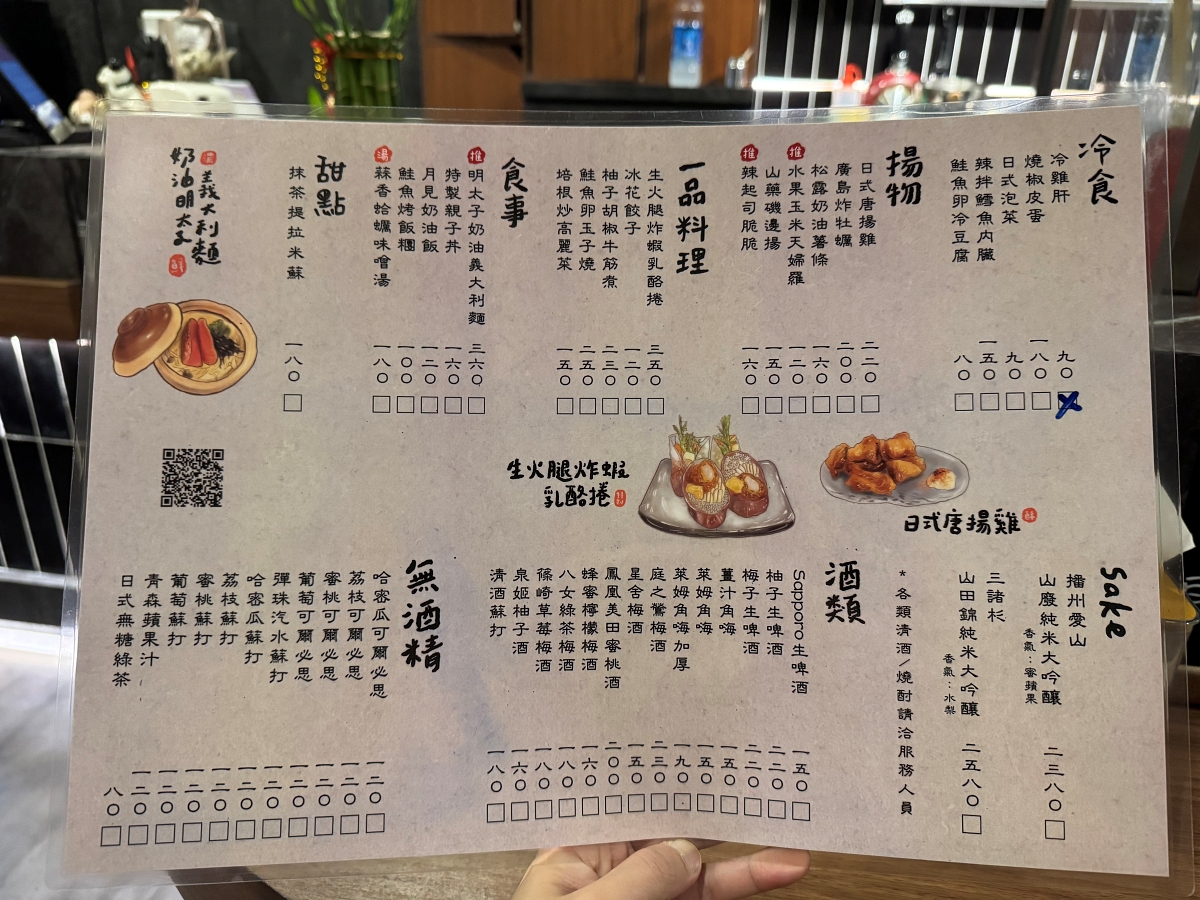 冷食
冷雞肝 九〇
燒椒皮蛋 一八〇
日式泡菜 九〇
辣拌鱈魚內臟 一五〇
鮭魚卵冷豆腐 八〇
揚物
日式唐揚雞 二二〇
廣島炸牡蠣 二〇〇
松露奶油薯條 一六〇
推 水果玉米天婦羅 一二〇
山藥磯邊揚 一五〇
推 辣起司脆脆 一六〇
一品料理
生火腿炸蝦乳酪捲 三五〇
冰花餃子 一二〇
柚子胡椒牛筋煮 二三〇
鮭魚卵玉子燒 一五〇
培根炒高麗菜 一五〇
食事
推 明太子奶油義大利麵 三六〇
特製親子丼 一六〇
月見奶油飯 一二〇
鮭魚烤飯糰 一〇〇
湯 蒜香蛤蠣味噌湯 一八〇
甜點
抹茶提拉米蘇 一八〇
奶油明太子
義大利麵
鮮
生火腿炸蝦
乳酪捲
日式唐揚雞
Sake
播州愛山
山廢純米大吟釀 二三八〇
香氣：蜜蘋果
三諸杉
山田錦純米大吟釀 二五八〇
香氣：水梨
*各類清酒/燒酎請洽服務人員
酒類
Sapporo生啤酒 一五〇
柚子生啤酒 二二〇
梅子生啤酒 二二〇
薑汁角嗨 一五〇
萊姆角嗨 一五〇
萊姆角嗨加厚 一九〇
庭之鶯梅酒 二三〇
星舍梅酒 一五〇
鳳凰美田蜜桃酒 二〇〇
蜂蜜檸檬梅酒 一六〇
八女綠茶梅酒 一八〇
篠崎草莓梅酒 一八〇
泉姬柚子酒 一六〇
清酒蘇打 一八〇
無酒精
哈密瓜可爾必思 一二〇
荔枝可爾必思 一二〇
蜜桃可爾必思 一二〇
葡萄可爾必思 一二〇
彈珠汽水蘇打 一二〇
哈密瓜蘇打 一二〇
荔枝蘇打 一二〇
蜜桃蘇打 一二〇
葡萄蘇打 一二〇
青森蘋果汁 一二〇
日式無糖綠茶 八〇